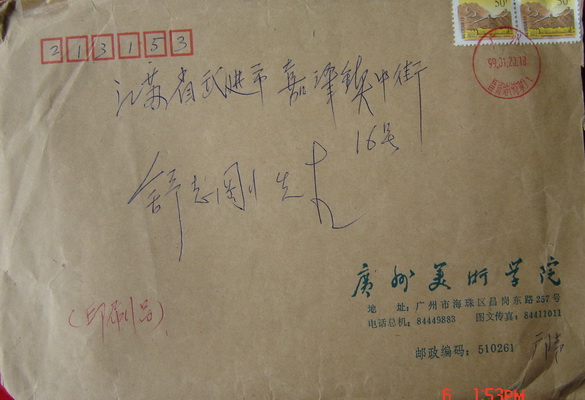 213153
50
50
99.01.22.18
江苏省武进市嘉泽镇中街
16号
舒志刚先生
(印刷品)
廣州美術学院
地 址:广州市海珠区昌岗东路257号
电话总机:84449883 图文传真:84411011
邮政编码:510261
6 1:53PM